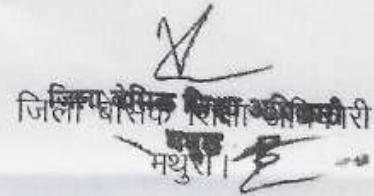 जिला बेसिक शिक्षा अधिकारी
मथुरा।